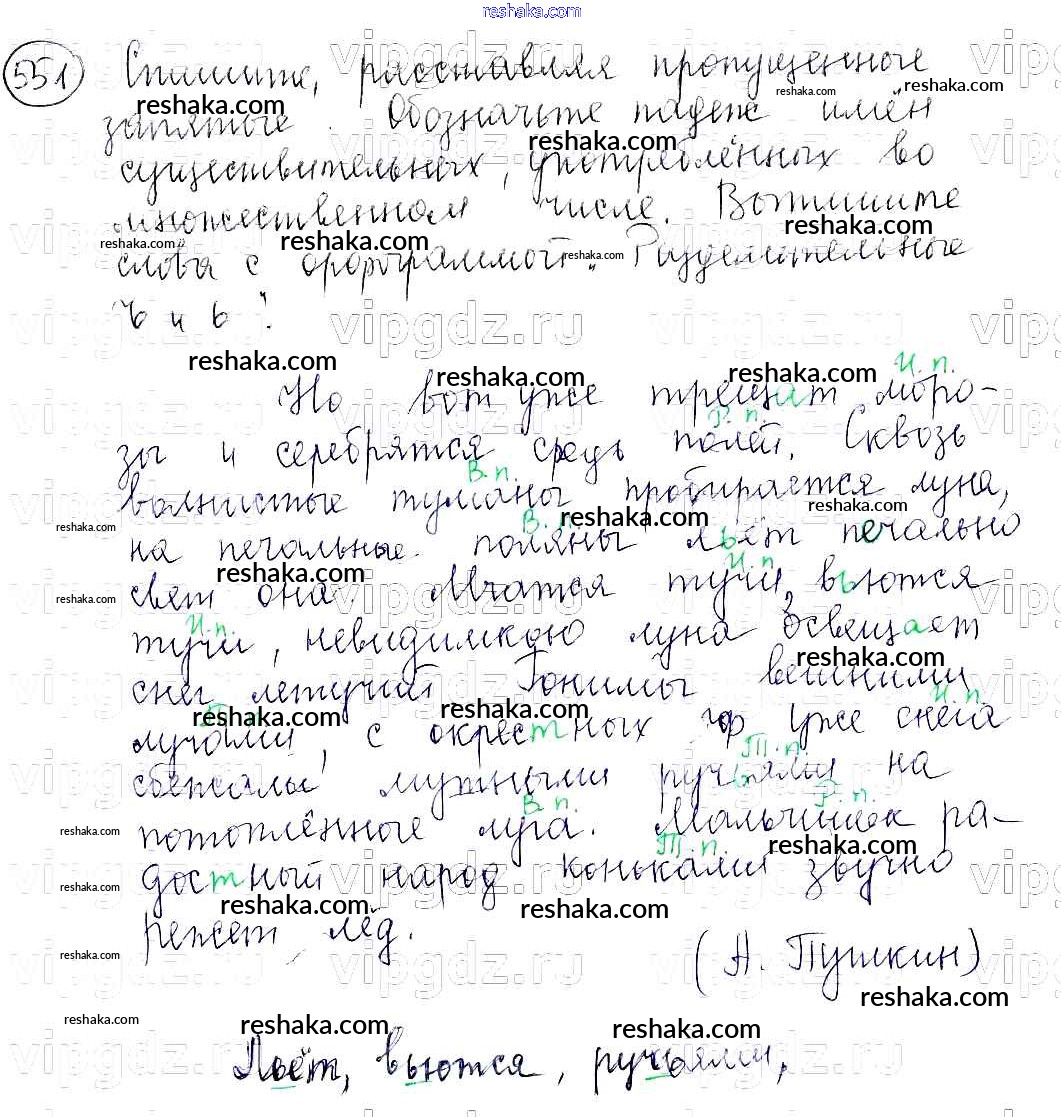 reshaka.com
551 Спишите, расставляя пропущенные
запятые. Обозначьте падеж имён
существительных, употреблённых во
множественном числе. Выпишите
слова с орфограммой „Разделительные
ъ и ь".
И.п.
Но вот уже трещат моро-
Р.п.
зы и серебрятся средь полей. Сквозь
В.п.
волнистые туманы пробирается луна,
В.п.
на печальные поляны льёт печально
И.п
свет она. Мчатся тучи, вьются
И.п.
тучи, невидимкою луна освещает
снег летучий. Гонимы вешними
И.п
лучами, с окрестных гор уже снега
Т.п.
сбежали мутными ручьями на
В.п. Р.п.
потоплённые луга. Мальчишек ра-
Т.п.
достный народ коньками звучно
режет лёд.
(А. Пушкин)
Льёт, вьются, ручьями,